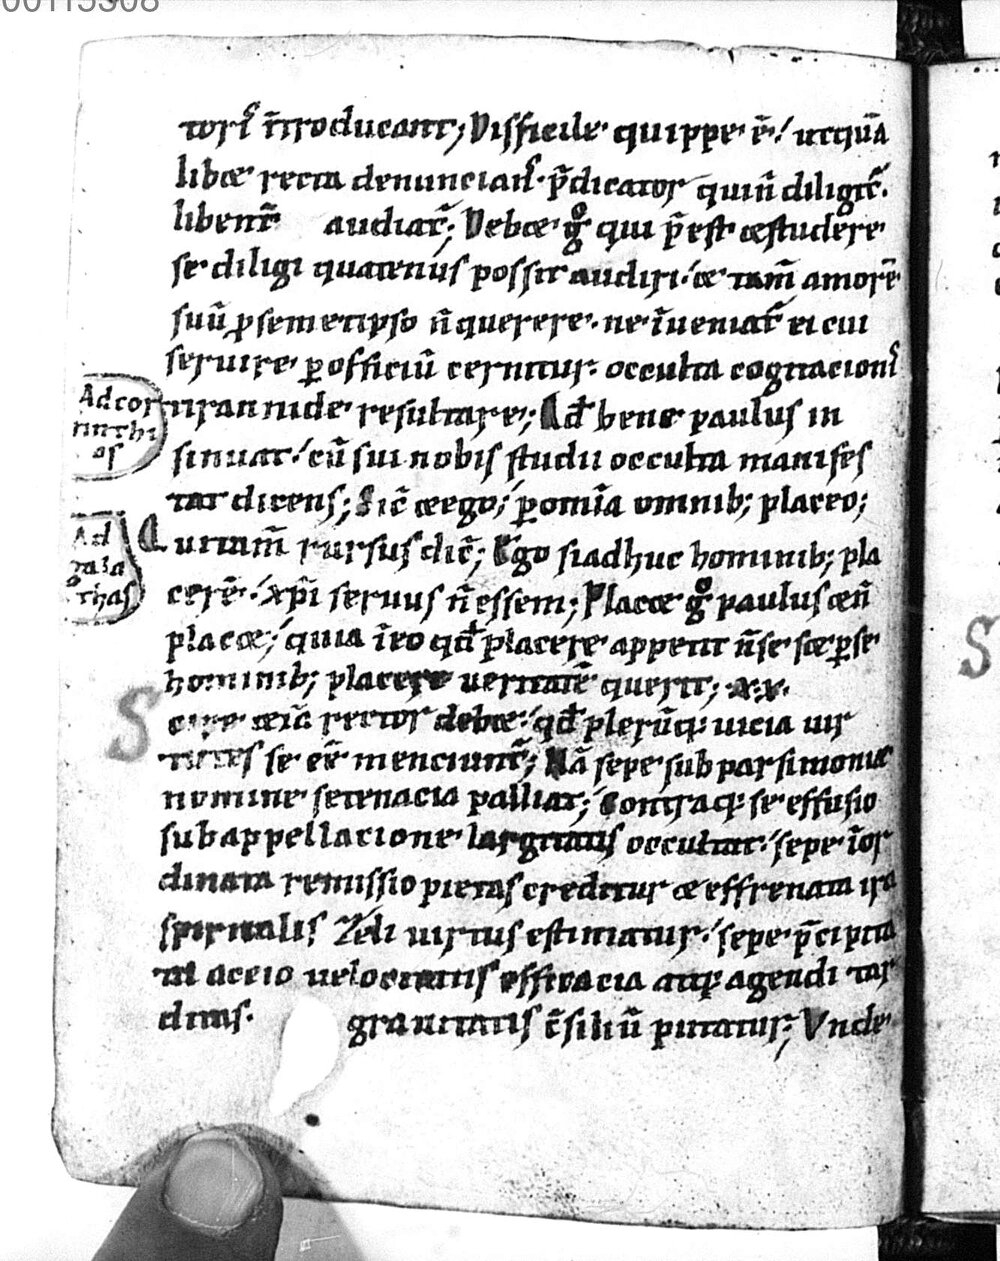 00115308
torꝭ ītroducant; Difficile quippe ē / ut quāuis
libꝫ recta denuncianꝭ p̄dicator qui n̄ diligit̄.
libent̄ audiat̄; Debꝫ g̊ qui p̄est ⁊ studere
se diligi quatenus possit audiri / ⁊ tam̄ amorē
suū ꝓ semetipso n̄ querere. ne īueniat̄ ei cui
seruire ꝑ officiū cernitur. occulta cogitacionꝭ
tirannide resultare; Qd̄ bene paulus in
sinuat / cū sui nobis studii occulta manifes
tat dicens; Sic̄ ⁊ ego / ꝑ omīa omnibꝫ placeo;
Qui tam̄ rursus dic̄; Ego si adhuc hominibꝫ pla
cerē / xp̄i seruus n̄ essem; Placꝫ g̊ paulus ⁊ n̄
placꝫ / quia īeo qd̄ placere appetit n̄ se sꝫ ꝑ se
hominibꝫ placere ueritatē querit; xx.
Scire ⁊iā rector debꝫ / qd̄ plerūqꝫ uicia uir
tutes se eē menciunt̄; Nā sepe sub parsimonie
nomine se tenacia palliat; Contraqꝫ se effusio
sub appellacione largitatis occultat / sepe īor
dinata remissio pietas creditur ⁊ effrenata ira
spiritalis zeli uirtus estimatur / sepe p̄cipita
ta accio uelocitatis efficacia atqꝫ agendi tar
ditas. grauitatis c̄siliū putatur; Vnde
Ad cor
rinthi
os
Ad
gala
thas
S